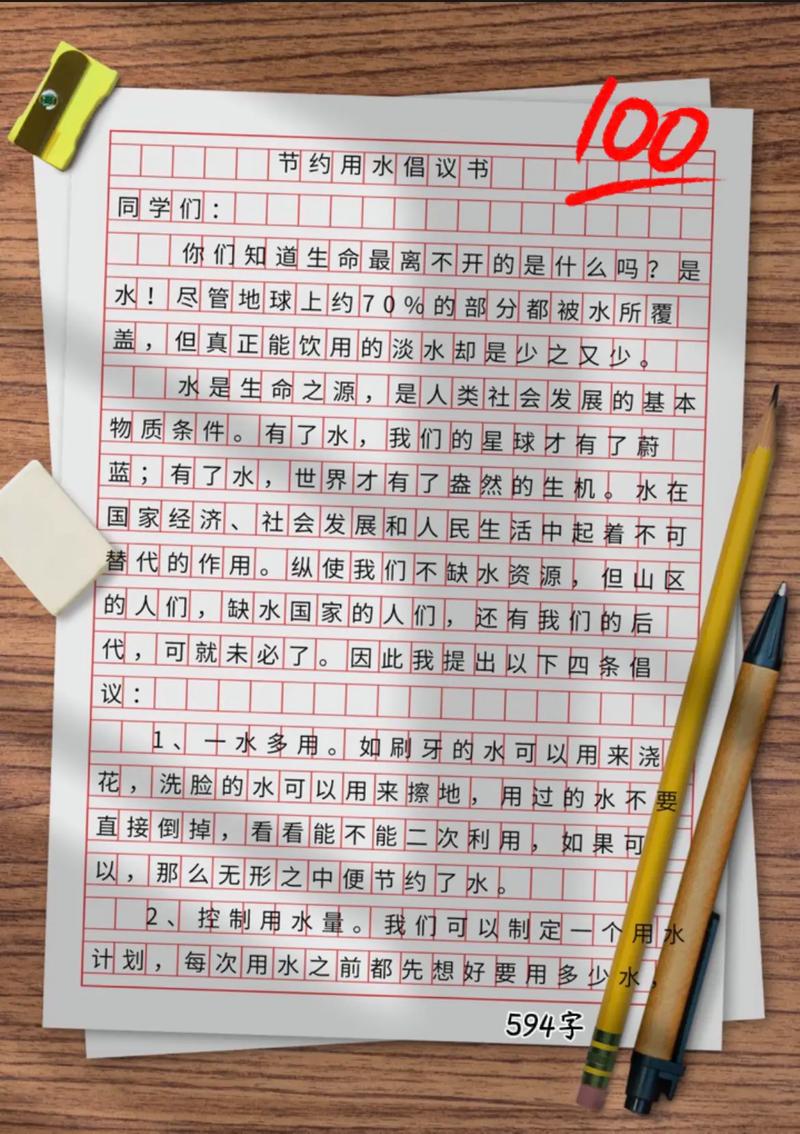 100
节约用水倡议书
同学们：
你们知道生命最离不开的是什么吗？是
水！尽管地球上约70%的部分都被水所覆
盖，但真正能饮用的淡水却是少之又少。
水是生命之源，是人类社会发展的基本
物质条件。有了水，我们的星球才有了蔚
蓝；有了水，世界才有了盎然的生机。水在
国家经济、社会发展和人民生活中起着不可
替代的作用。纵使我们不缺水资源，但山区
的人们，缺水国家的人们，还有我们的后
代，可就未必了。因此我提出以下四条倡
议：
1、一水多用。如刷牙的水可以用来浇
花，洗脸的水可以用来擦地，用过的水不要
直接倒掉，看看能不能二次利用，如果可
以，那么无形之中便节约了水。
2、控制用水量。我们可以制定一个用水
计划，每次用水之前都先想好要用多少水，
594字